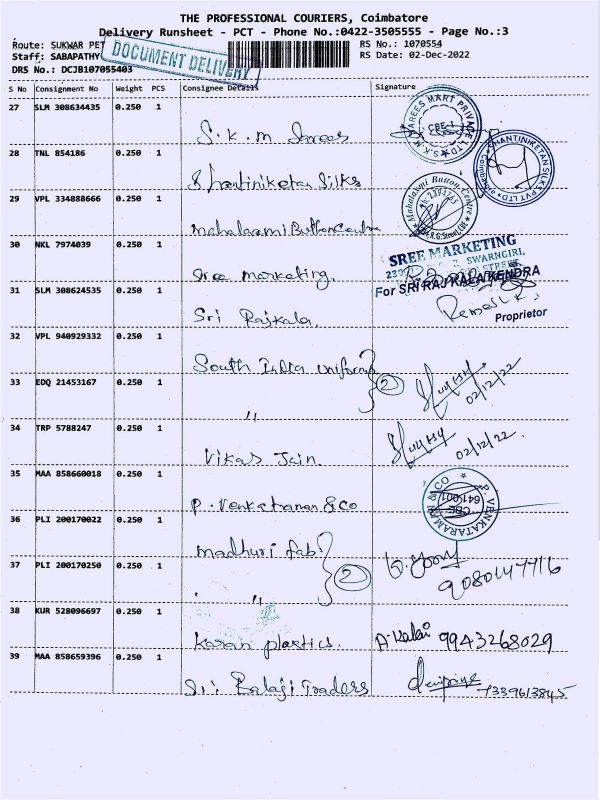 THE PROFESSIONAL COURIERS, Coimbatore
Delivery Runsheet - PCT - Phone No.:0422-3505555 - Page No.:3
Route: SUKWAR PET
RS No.: 1070554
Staff: SABAPATHY
RS Date: 02-Dec-2022
DRS No.: DCJB107055403
DOCUMENT DELIVERY
S No Consignment No Weight PCS Consignee Details Signature
27 SLM 308634435 0.250 1
S.K.M Sarees
28 TNL 854186 0.250 1
Shantiniketan Silks
29 VPL 334888666 0.250 1
Mahalaxmi Button Centre
30 NKL 7974039 0.250 1
Sree marketing.
SREE MARKETING
SWARNGIRI,
STREET
31 SLM 308624535 0.250 1
For SRI RAJ KALA KENDRA
Sri Rajkala.
Proprietor
32 VPL 940929332 0.250 1
South India uniform
33 EDQ 21453167 0.250 1
2
02/12/22
"
34 TRP 5788247 0.250 1
Vikas Jain.
02/12/22.
35 MAA 858660018 0.250 1
P. Venkatraman & Co
P. VENKATARAMAN & CO
CBE
641 001
36 PLI 200170022 0.250 1
madhuri fab
37 PLI 200170250 0.250 1
2
9080147716
"
38 KUR 528096697 0.250 1
Karan plastics.
A. Kalai 9943268029
39 MAA 858659396 0.250 1
Sri Balaji Traders
7339613845